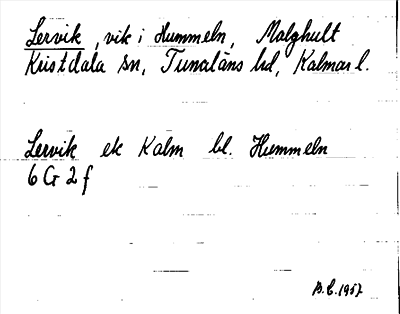 Lervik, vik i Hummeln, Malghult
Kristdala sn, Tunaläns hd, Kalmar l.
Lervik ek Kalm bl. Hummeln
6 G 2 f
B.E. 1957